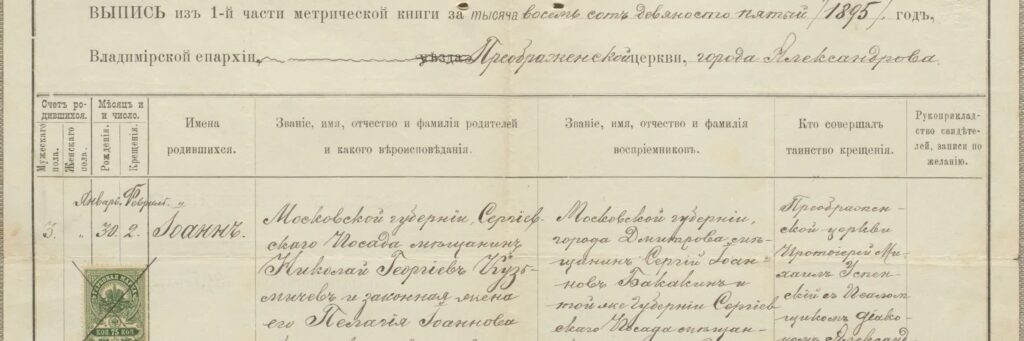 ВЫПИСЬ изъ 1-й части метрической книги за тысяча восемь сотъ девяносто пятый /1895/ годъ,
Владимірской епархіи, уѣзда Преображенской церкви, города Александрова.
Счетъ родившихся.
Мужескаго пола.
Женскаго пола.
Мѣсяцъ и и число.
Рожденія.
Крещенія.
Имена родившихся.
Званіе, имя, отчество и фамилія родителей и какого вѣроисповѣданія.
Званіе, имя, отчество и фамилія воспріемниковъ.
Кто совершалъ таинство крещенія.
Рукоприкладство свидѣтелей, записи по желанію.
Январь. Февраль. „
3. „ 30. 2.
Іоаннъ.
Московской губерніи, Сергіев-
скаго Посада мѣщанинъ
Николай Георгіевъ
и законная жена
его Пелагія Іоаннова
Московской губерніи,
города Дмитрова, мѣ-
щанинъ Сергій Іоан-
новъ Бакакинъ и
той же губерніи Сергіев-
скаго Посада мѣщан-
Преображен-
ской церкви
Протоіерей Ми-
хаилъ Успен-
скій съ Псалом-
щикомъ діако-
номъ Александ-
КОП 75 КОП